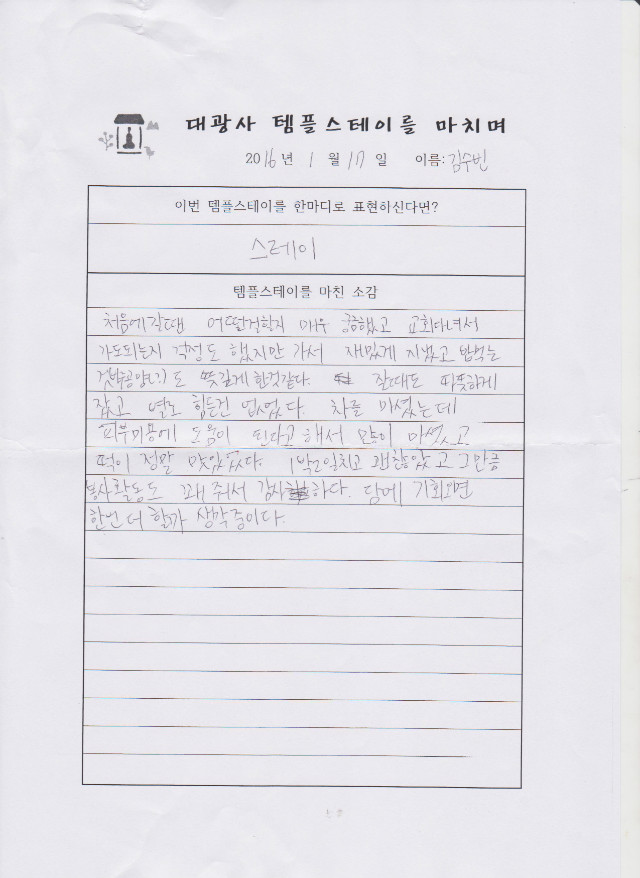 대광사 템플스테이를 마치며
2016년 1월 17일 이름: 김수빈
이번 템플스테이를 한마디로 표현하신다면?
스테이
템플스테이를 마친 소감
처음에갈땐 어떨걸할지 매우 궁금했고 교회다녀서
가도되는지 걱정도 했지만 가서 재밌게 지냈고 밥먹는
것(공양(?)도 뜻깊게 한것같다. 잘때도 따뜻하게
잤고 별로 힘든건 없었다. 차를 마셨는데
피부미용에 도움이 된다고 해서 많이 마셨고
떡이 정말 맛있었다. 1박2일치고 괜찮았고 그만큼
봉사활동도 꽤 줘서 감사하다. 담에 기회오면
한번 더 할까 생각중이다.